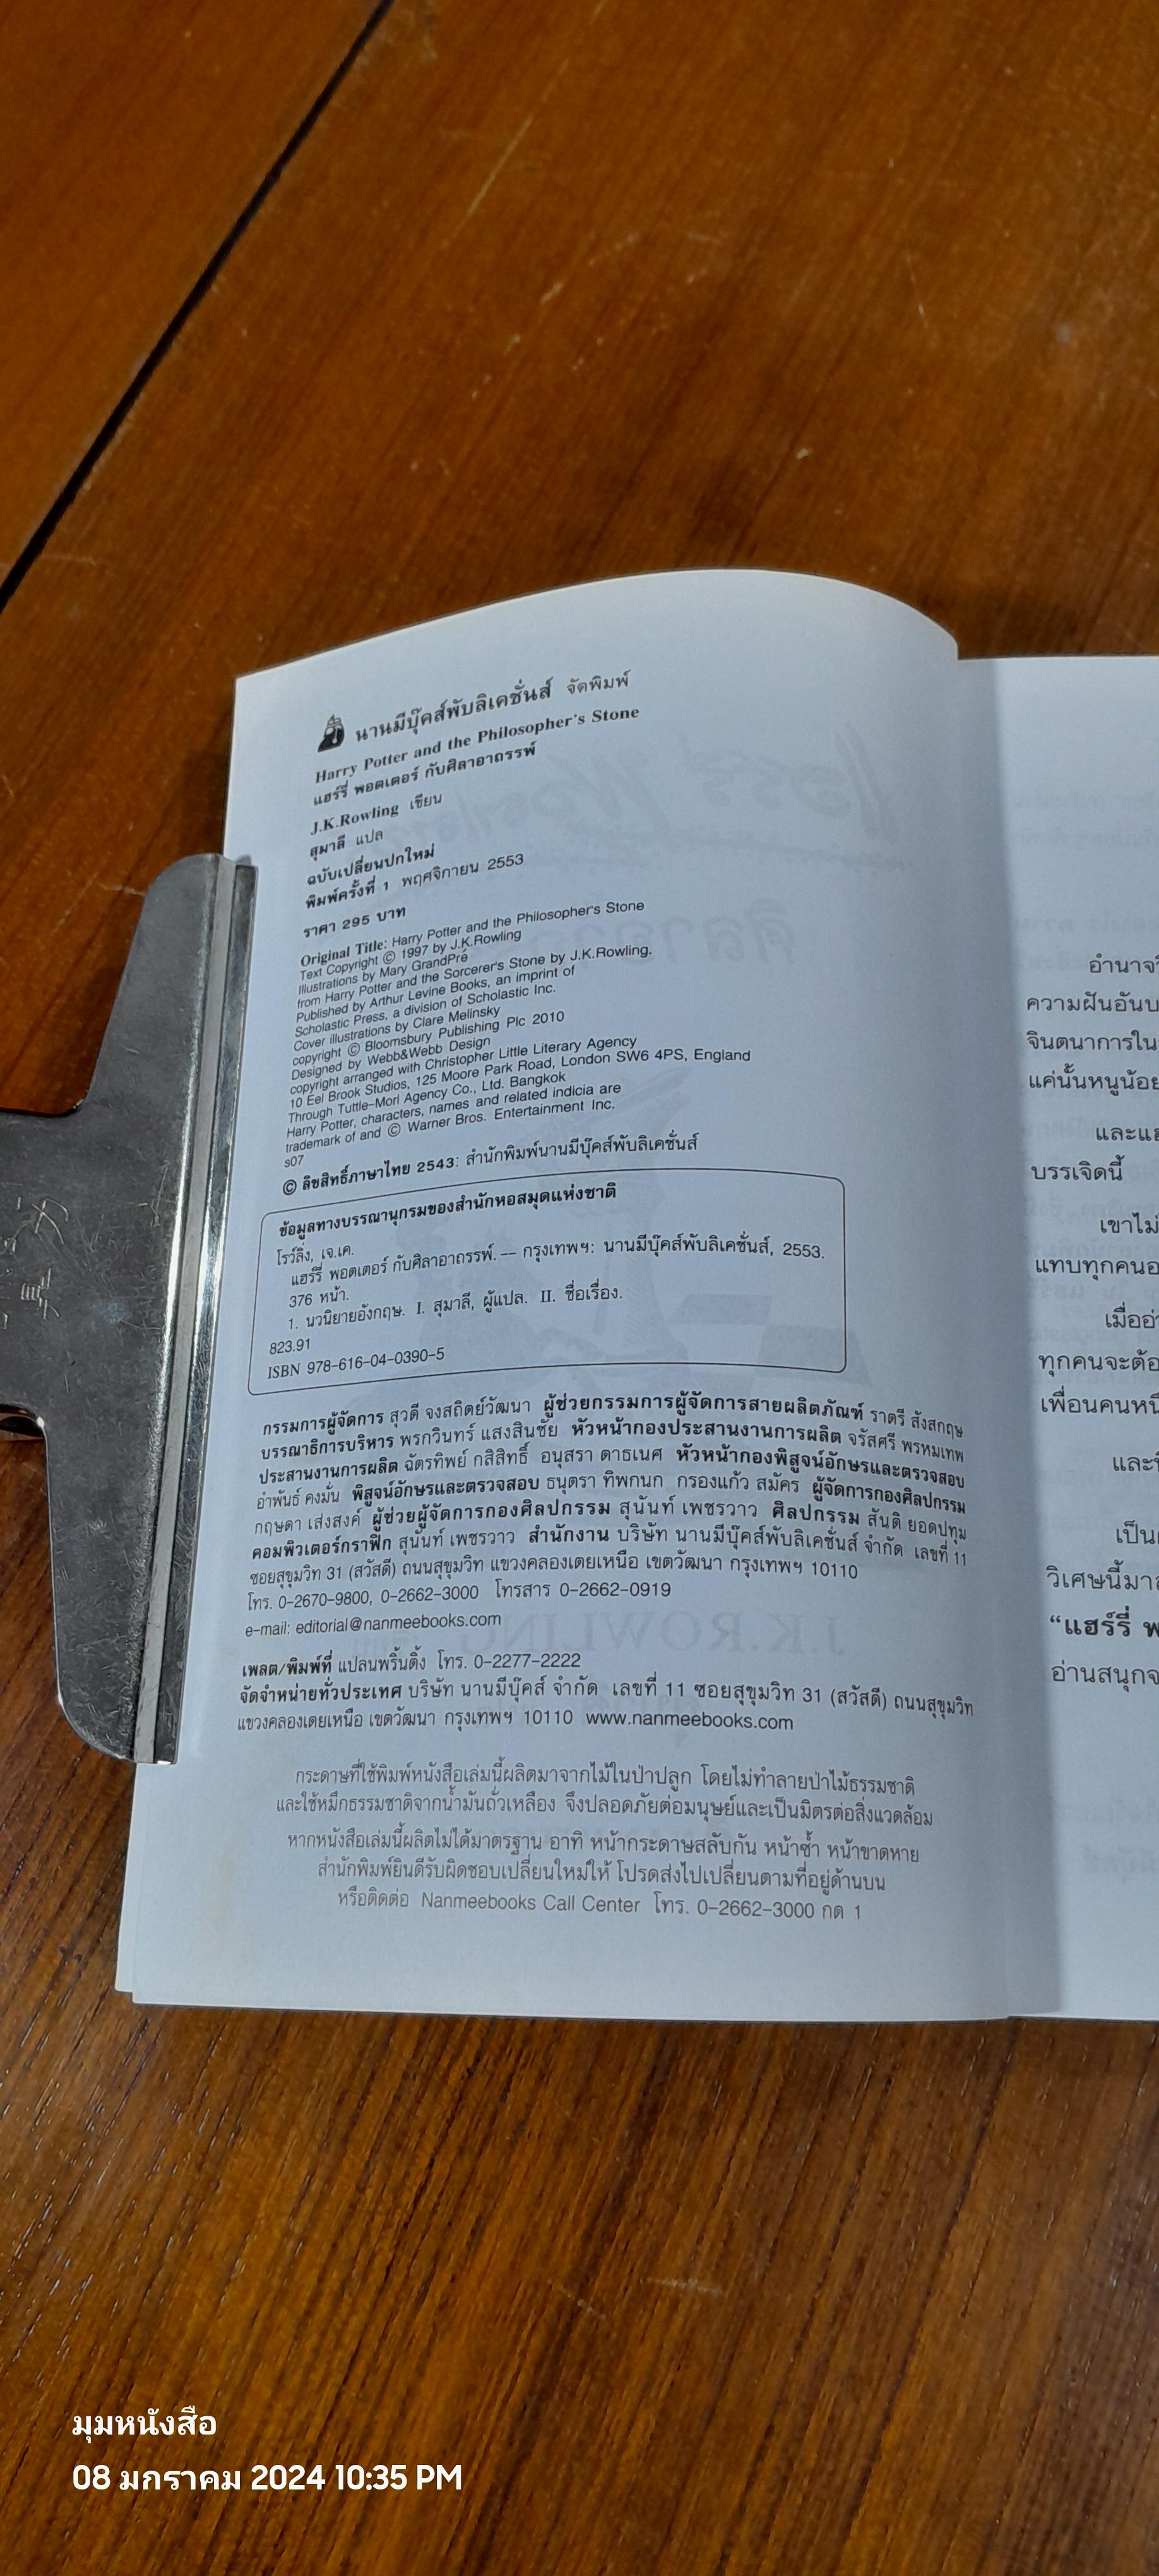 นานมีบุ๊คส์พับลิเคชั่นส์ จัดพิมพ์
Harry Potter and the Philosopher's Stone
แฮร์รี่ พอตเตอร์ กับศิลาอาถรรพ์
J.K.Rowling เขียน
สุมาลี แปล
ฉบับเปลี่ยนปกใหม่
พิมพ์ครั้งที่ 1 พฤศจิกายน 2553
ราคา 295 บาท
Original Title: Harry Potter and the Philosopher's Stone
Text Copyright © 1997 by J.K.Rowling
Illustrations by Mary GrandPré
from Harry Potter and the Sorcerer's Stone by J.K.Rowling.
Published by Arthur Levine Books, an imprint of
Scholastic Press, a division of Scholastic Inc.
Cover illustrations by Clare Melinsky
copyright © Bloomsbury Publishing Plc 2010
Designed by Webb&Webb Design
copyright arranged with Christopher Little Literary Agency
10 Eel Brook Studios, 125 Moore Park Road, London SW6 4PS, England
Through Tuttle-Mori Agency Co., Ltd. Bangkok
Harry Potter, characters, names and related indicia are
trademark of and © Warner Bros. Entertainment Inc.
s07
© ลิขสิทธิ์ภาษาไทย 2543: สำนักพิมพ์นานมีบุ๊คส์พับลิเคชั่นส์
ข้อมูลทางบรรณานุกรมของสำนักหอสมุดแห่งชาติ
โรว์ลิ่ง, เจ.เค.
แฮร์รี่ พอตเตอร์ กับศิลาอาถรรพ์. -- กรุงเทพฯ: นานมีบุ๊คส์พับลิเคชั่นส์, 2553.
376 หน้า.
1. นวนิยายอังกฤษ. I. สุมาลี, ผู้แปล. II. ชื่อเรื่อง.
823.91
ISBN 978-616-04-0390-5
กรรมการผู้จัดการ สุวดี จงสถิตย์วัฒนา ผู้ช่วยกรรมการผู้จัดการสายผลิตภัณฑ์ ราตรี สังสกฤษ
บรรณาธิการบริหาร พรกวินทร์ แสงสินชัย หัวหน้ากองประสานงานการผลิต จรัสศรี พรหมเทพ
ประสานงานการผลิต ฉัตรทิพย์ กสิสิทธิ์ อนุสรา ดาธเนศ หัวหน้ากองพิสูจน์อักษรและตรวจสอบ
อำพันธ์ คงมั่น พิสูจน์อักษรและตรวจสอบ ธนุตรา ทิพกนก กรองแก้ว สมัคร ผู้จัดการกองศิลปกรรม
กฤษดา เส่งสงค์ ผู้ช่วยผู้จัดการกองศิลปกรรม สุนันท์ เพชรวาว ศิลปกรรม สันติ ยอดปทุม
คอมพิวเตอร์กราฟิก สุนันท์ เพชรวาว สำนักงาน บริษัท นานมีบุ๊คส์พับลิเคชั่นส์ จำกัด เลขที่ 11
ซอยสุขุมวิท 31 (สวัสดี) ถนนสุขุมวิท แขวงคลองเตยเหนือ เขตวัฒนา กรุงเทพฯ 10110
โทร. 0-2670-9800, 0-2662-3000 โทรสาร 0-2662-0919
e-mail: editorial@nanmeebooks.com
เพลต/พิมพ์ที่ แปลนพริ้นติ้ง โทร. 0-2277-2222
จัดจำหน่ายทั่วประเทศ บริษัท นานมีบุ๊คส์ จำกัด เลขที่ 11 ซอยสุขุมวิท 31 (สวัสดี) ถนนสุขุมวิท
แขวงคลองเตยเหนือ เขตวัฒนา กรุงเทพฯ 10110 www.nanmeebooks.com
กระดาษที่ใช้พิมพ์หนังสือเล่มนี้ผลิตมาจากไม้ในป่าปลูก โดยไม่ทำลายป่าไม้ธรรมชาติ
และใช้หมึกธรรมชาติจากน้ำมันถั่วเหลือง จึงปลอดภัยต่อมนุษย์และเป็นมิตรต่อสิ่งแวดล้อม
หากหนังสือเล่มนี้ผลิตไม่ได้มาตรฐาน อาทิ หน้ากระดาษสลับกัน หน้าซ้ำ หน้าขาดหาย
สำนักพิมพ์ยินดีรับผิดชอบเปลี่ยนใหม่ให้ โปรดส่งไปเปลี่ยนตามที่อยู่ด้านบน
หรือติดต่อ Nanmeebooks Call Center โทร. 0-2662-3000 กด 1
อำนาจวิ
ความฝันอันบ
จินตนาการใน
แค่นั้นหนูน้อย
และแฮ
บรรเจิดนี้
เขาไม่
แทบทุกคนอ
เมื่ออ่า
ทุกคนจะต้อ
เพื่อนคนหนึ
และ
เป็น
วิเศษนี้มา
"แฮร์รี่ พ
อ่านสนุกจ
มุมหนังสือ
08 มกราคม 2024 10:35 PM